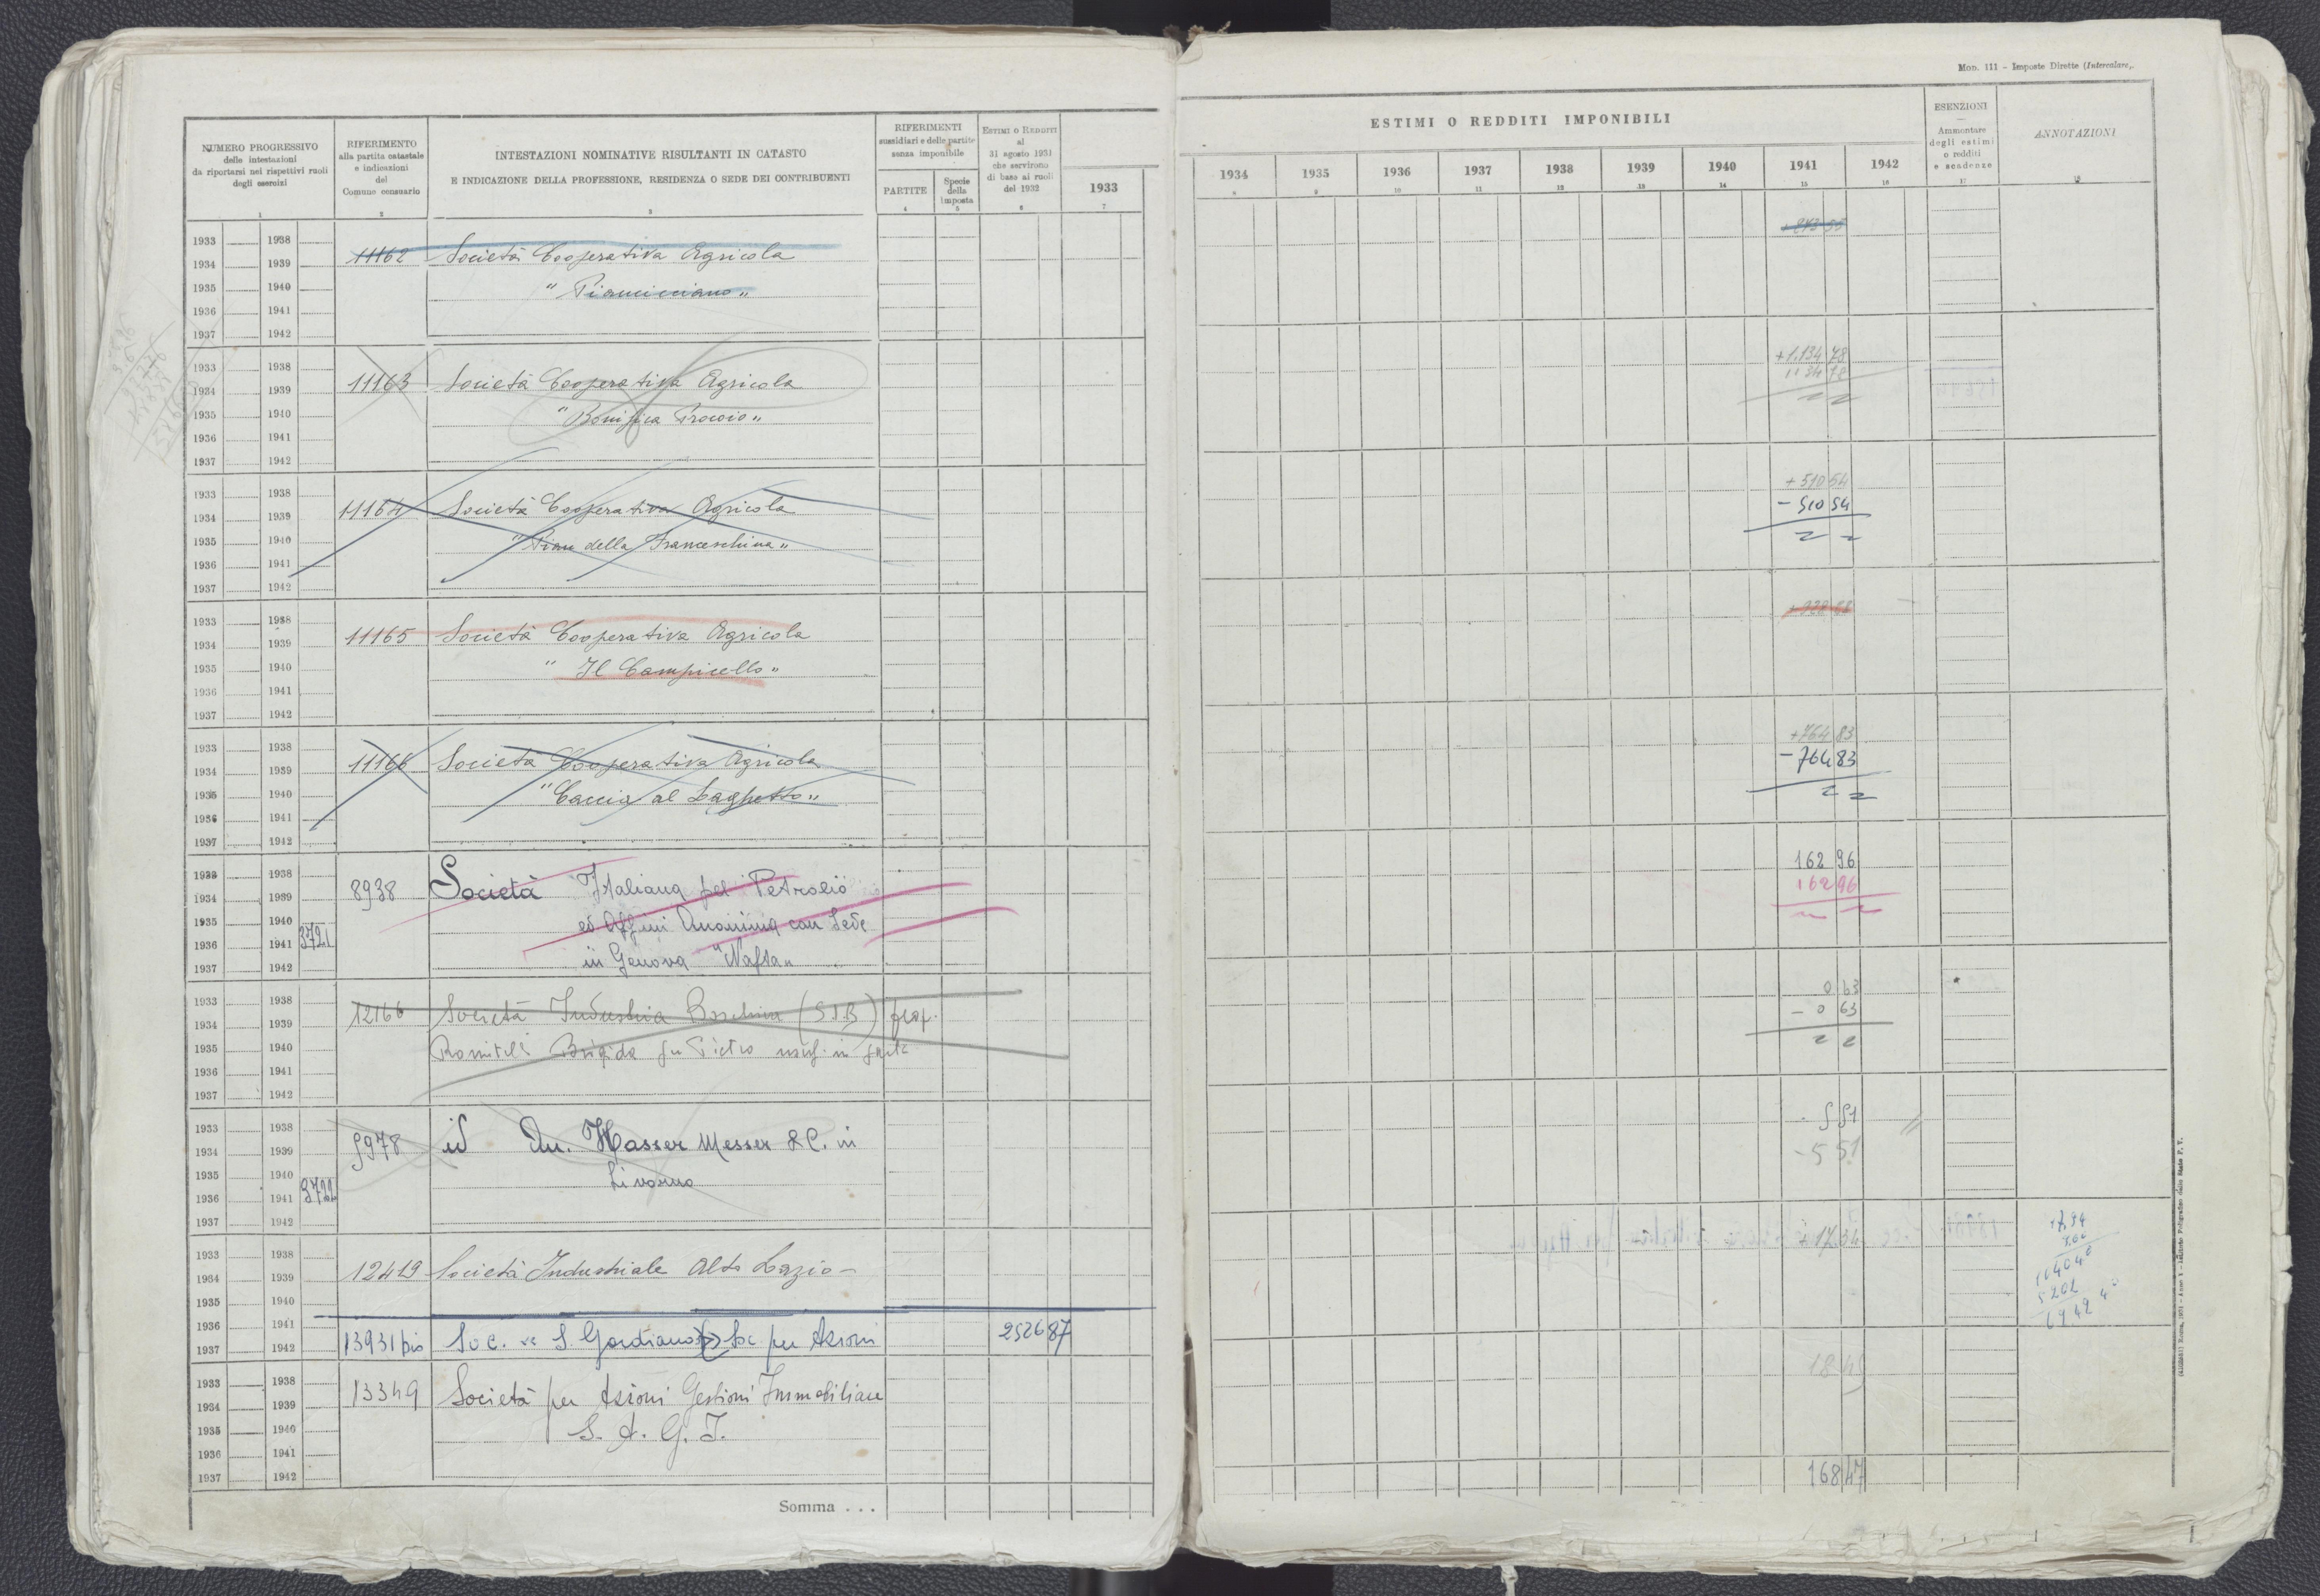 Mod. 111 - Imposte Dirette (Intercalare).
NUMERO PROGRESSIVO
delle intestazioni
da riportarsi nei rispettivi ruoli
degli esercizi
1
RIFERIMENTO
alla partita catastale
e indicazioni
del
Comune censuario
2
INTESTAZIONI NOMINATIVE RISULTANTI IN CATASTO
E INDICAZIONE DELLA PROFESSIONE, RESIDENZA O SEDE DEI CONTRIBUENTI
3
RIFERIMENTI
sussidiari e delle partite
senza imponibile
PARTITE
4
Specie
della
imposta
5
ESTIMI O REDDITI
al
31 agosto 1931
che servirono
di base ai ruoli
del 1932
6
1933
7
ESTIMI O REDDITI IMPONIBILI
1934 1935 1936 1937 1938 1939 1940 1941 1942
8 9 10 11 12 13 14 15 16
ESENZIONI
Ammontare
degli estimi
o redditi
e scadenze
17
ANNOTAZIONI
18
1933 1938
1934 1939 11162 Società Cooperativa Agricola
1935 1940 "Piancicciano"
1936 1941
1937 1942
1933 1938 +1.134 78
1934 1939 11163 Società Cooperativa Agricola 1134 78
1935 1940 "Bonifica Procoio"
1936 1941
1937 1942
1933 1938 +510 54
1934 1939 11164 Società Cooperativa Agricola -510 54
1935 1940 "Pian della Franceschina"
1936 1941
1937 1942
1933 1938
1934 1939 11165 Società Cooperativa Agricola
1935 1940 "Il Campicello"
1936 1941
1937 1942
1933 1938 +764 83
1934 1939 11166 Società Cooperativa Agricola -764 83
1935 1940 "Caccia al Laghetto"
1936 1941
1937 1942
1933 1938 162 96
1934 1939 8938 Società Italiana pel Petrolio 162 96
1935 1940 ed Affini Anonima con Sede
1936 1941 3721 in Genova "Nafta"
1937 1942
1933 1938 0 63
1934 1939 12166 Società Industria Boschiva (S I B) prop. - 0 63
1935 1940 Brigida fu Pietro usuf. in parte
1936 1941
1937 1942
1933 1938 5 51
1934 1939 5978 id An. Hasser Messer & C. in -5 51
1935 1940 Livorno
1936 1941 3722
1937 1942
1933 1938 + 17.34
1934 1939 12419 Società Industriale Alto Lazio
1935 1940
1936 1941
1937 1942 13931 bis Soc. "S Gordiano" Soc per Azioni 2526 87
1933 1938 13349 Società per Azioni Gestioni Immobiliare 18 49
1934 1939
1935 1940 S. A. G. I.
1936 1941
1937 1942 168 47
Somma . . .